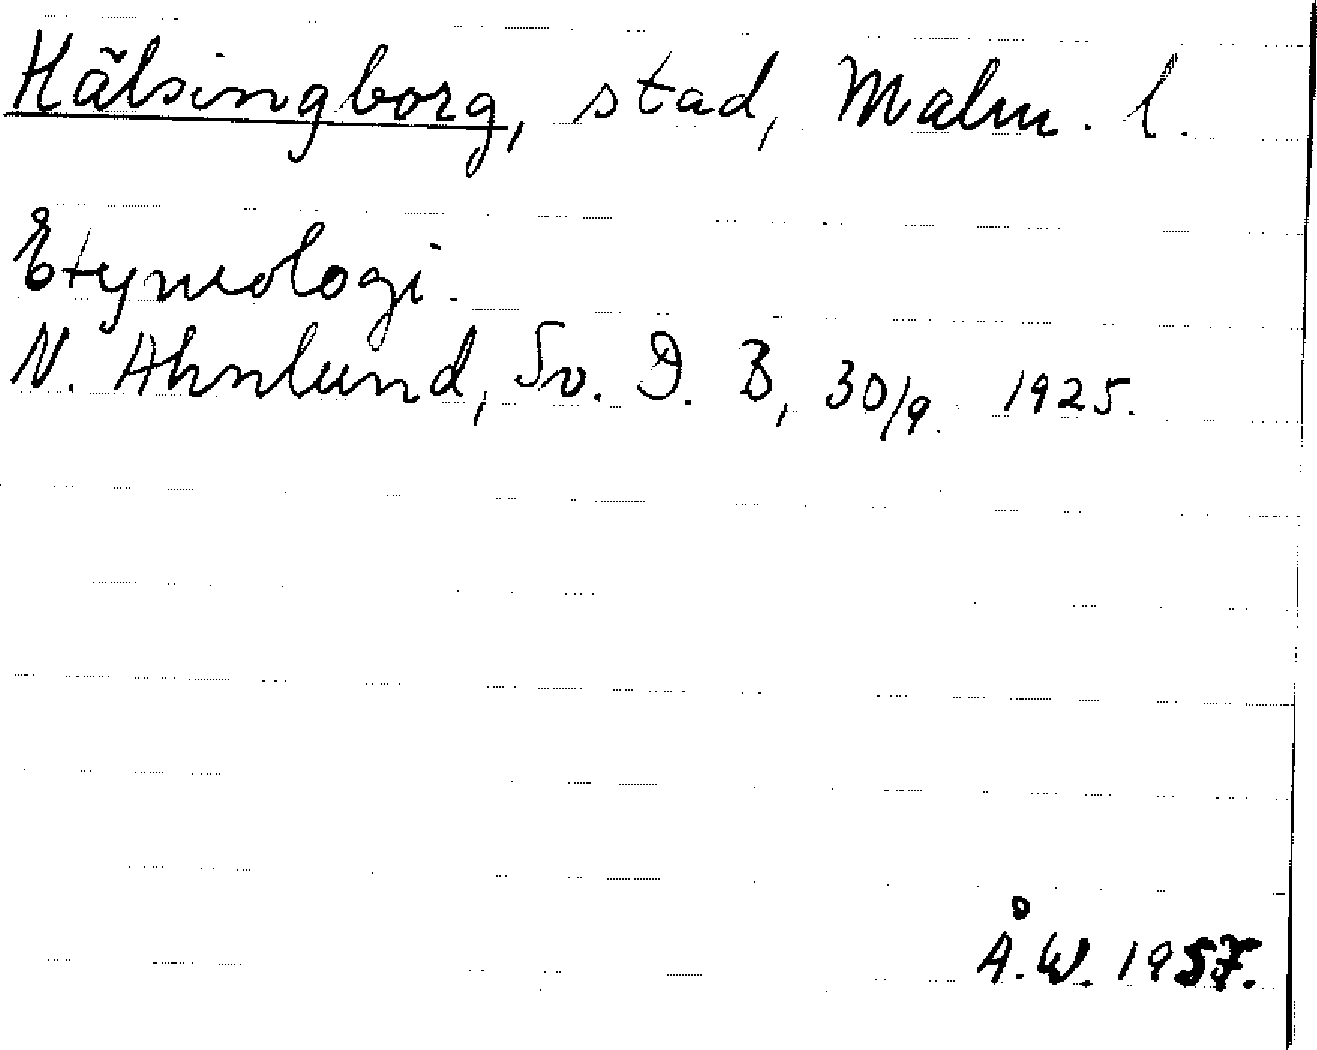 Hälsingborg, stad, Malm. l.
Etymologi.
N. Ahnlund, Sv. D. B, 30/9. 1925.
Å.W. 1957.